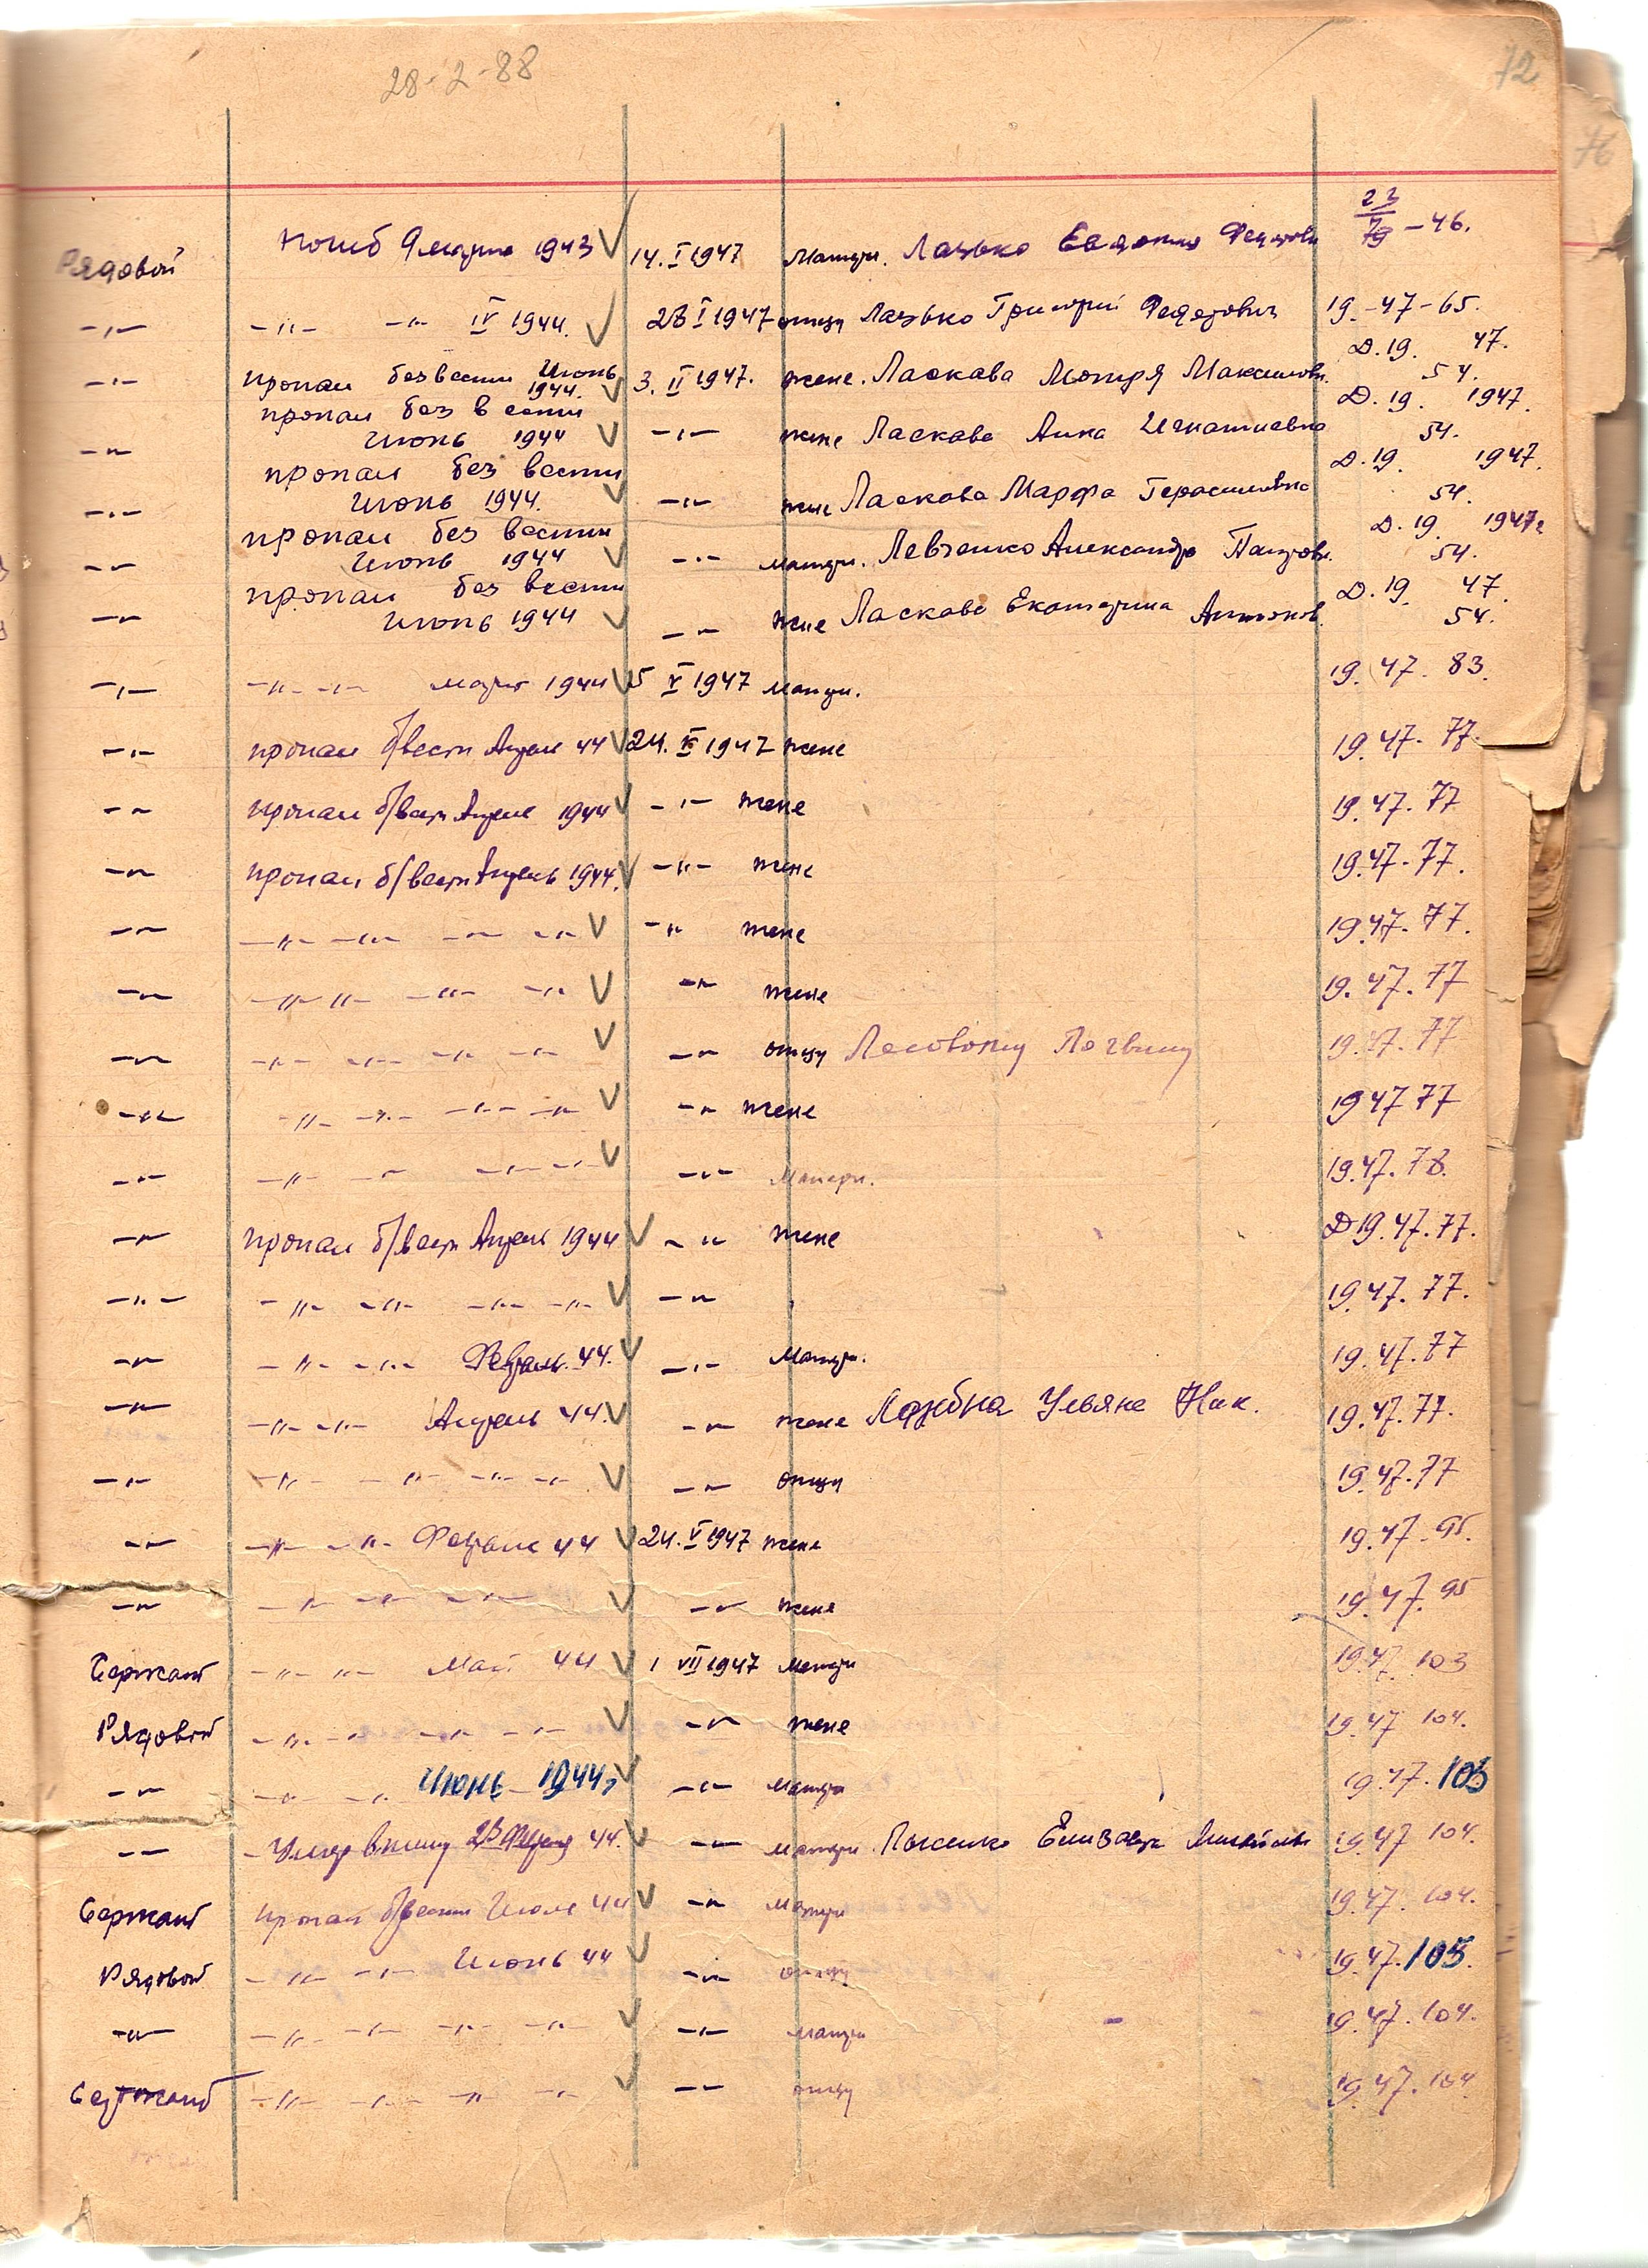 28-2-88
72
76
Рядовой погиб 9 марта 1943 V 14. I 1947 матери. Лазько Евдокия Федоровн 23/79 - 46.
-"- -"- -"- IV 1944. V 28 I 1947 отцу Лазько Григорий Федорович 19.-47-65.
Д.19. 47.
-"- пропал без вести Июнь 1944. V 3. II 1947. жене. Ласкава Мотря Максимовн. 54.
пропал без вести Д.19. 1947.
-"- Июнь 1944 V -"- жене Ласкава Анна Игнатиевна 54.
пропал без вести Д.19. 1947.
-"- Июнь 1944. V -"- жене Ласкава Марфа Герасимовна 54.
пропал без вести Д.19. 1947г
-"- Июнь 1944 V -"- матери. Левченко Александра Петровн. 54.
пропал без вести Д.19. 47.
-"- Июнь 1944 V -"- жене Ласкава Екатерина Антонов. 54.
-"- -"- -"- март 1944 V 5 V 1947 матери. 19. 47. 83.
-"- пропал б/вести Апреле 44 V 24. 1947 жене 19.47. 77.
-"- пропал б/вести Апреле 1944 V -"- жене 19.47.77
-"- пропал б/вести Апрель 1944. V -"- жене 19.47.77.
-"- -"- -"- -"- -"- V -"- жене 19.47.77.
-"- -"- -"- -"- -"- V -"- жене 19.47.77
-"- -"- -"- -"- -"- V -"- отцу Лесовому Логвину 19.47.77
-"- -"- -"- -"- -"- V -"- жене 19 47 77
-"- -"- -"- -"- -"- V -"- Матери. 19.47.78.
-"- пропал б/вести Апрель 1944 V -"- жене Д19.47.77.
-"- -"- -"- -"- -"- V -"- 19.47.77.
-"- -"- -"- Февраль. 44. V -"- Матери. 19.47.77
-"- -"- -"- Апрель 44. V -"- жене Ульяне Ник. 19.47.77.
-"- -"- -"- -"- -"- V -"- отцу 19.47.77
-"- -"- -"- Феврале 44 V 24. V 1947 жене 19.47.95.
-"- -"- -"- -"- V -"- жене 19.47.95
Сержант -"- -"- Май 44 V 1 VII 1947 матери 19.47. 103
Рядовой -"- -"- -"- -"- V -"- жене 19.47 104.
-"- -"- -"- Июне 1944г V -"- матери 19.47.103
-"- -Умер в плену 28 Февраля 44. V -"- матери Лысенко 19.47 104.
Сержант пропал б/вести Июле 44 V -"- матери 19.47. 104.
Рядовой -"- -"- Июнь 44 V -"- отцу 19.47.105.
-"- -"- -"- -"- -"- V -"- матери 19.47.104.
Сержант -"- -"- -"- -"- V -"- отцу 19.47.104